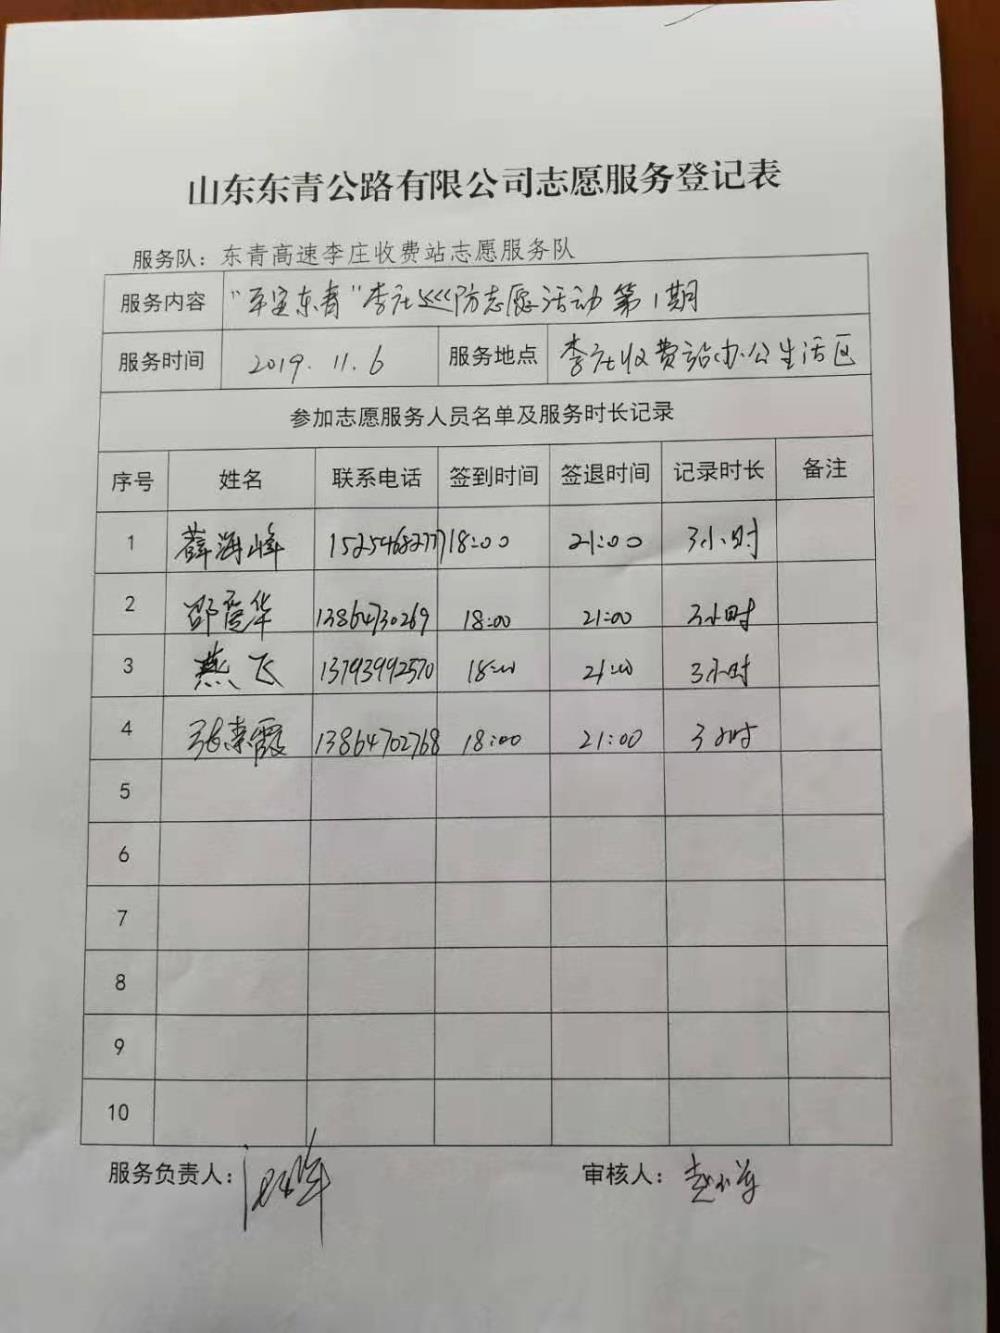 山东东青公路有限公司志愿服务登记表
服务队：东青高速李庄收费站志愿服务队
服务内容 "平安东青"李庄巡防志愿活动 第1期
服务时间 2019.11.6 服务地点 李庄收费站办公生活区
参加志愿服务人员名单及服务时长记录
序号 姓名 联系电话 签到时间 签退时间 记录时长 备注
1 薛海峰 15254682777 18:00 21:00 3小时
2 邵爱华 13864730269 18:00 21:00 3小时
3 燕飞 13793992570 18:00 21:00 3小时
4 张素霞 13864702768 18:00 21:00 3小时
5
6
7
8
9
10
服务负责人： 审核人：